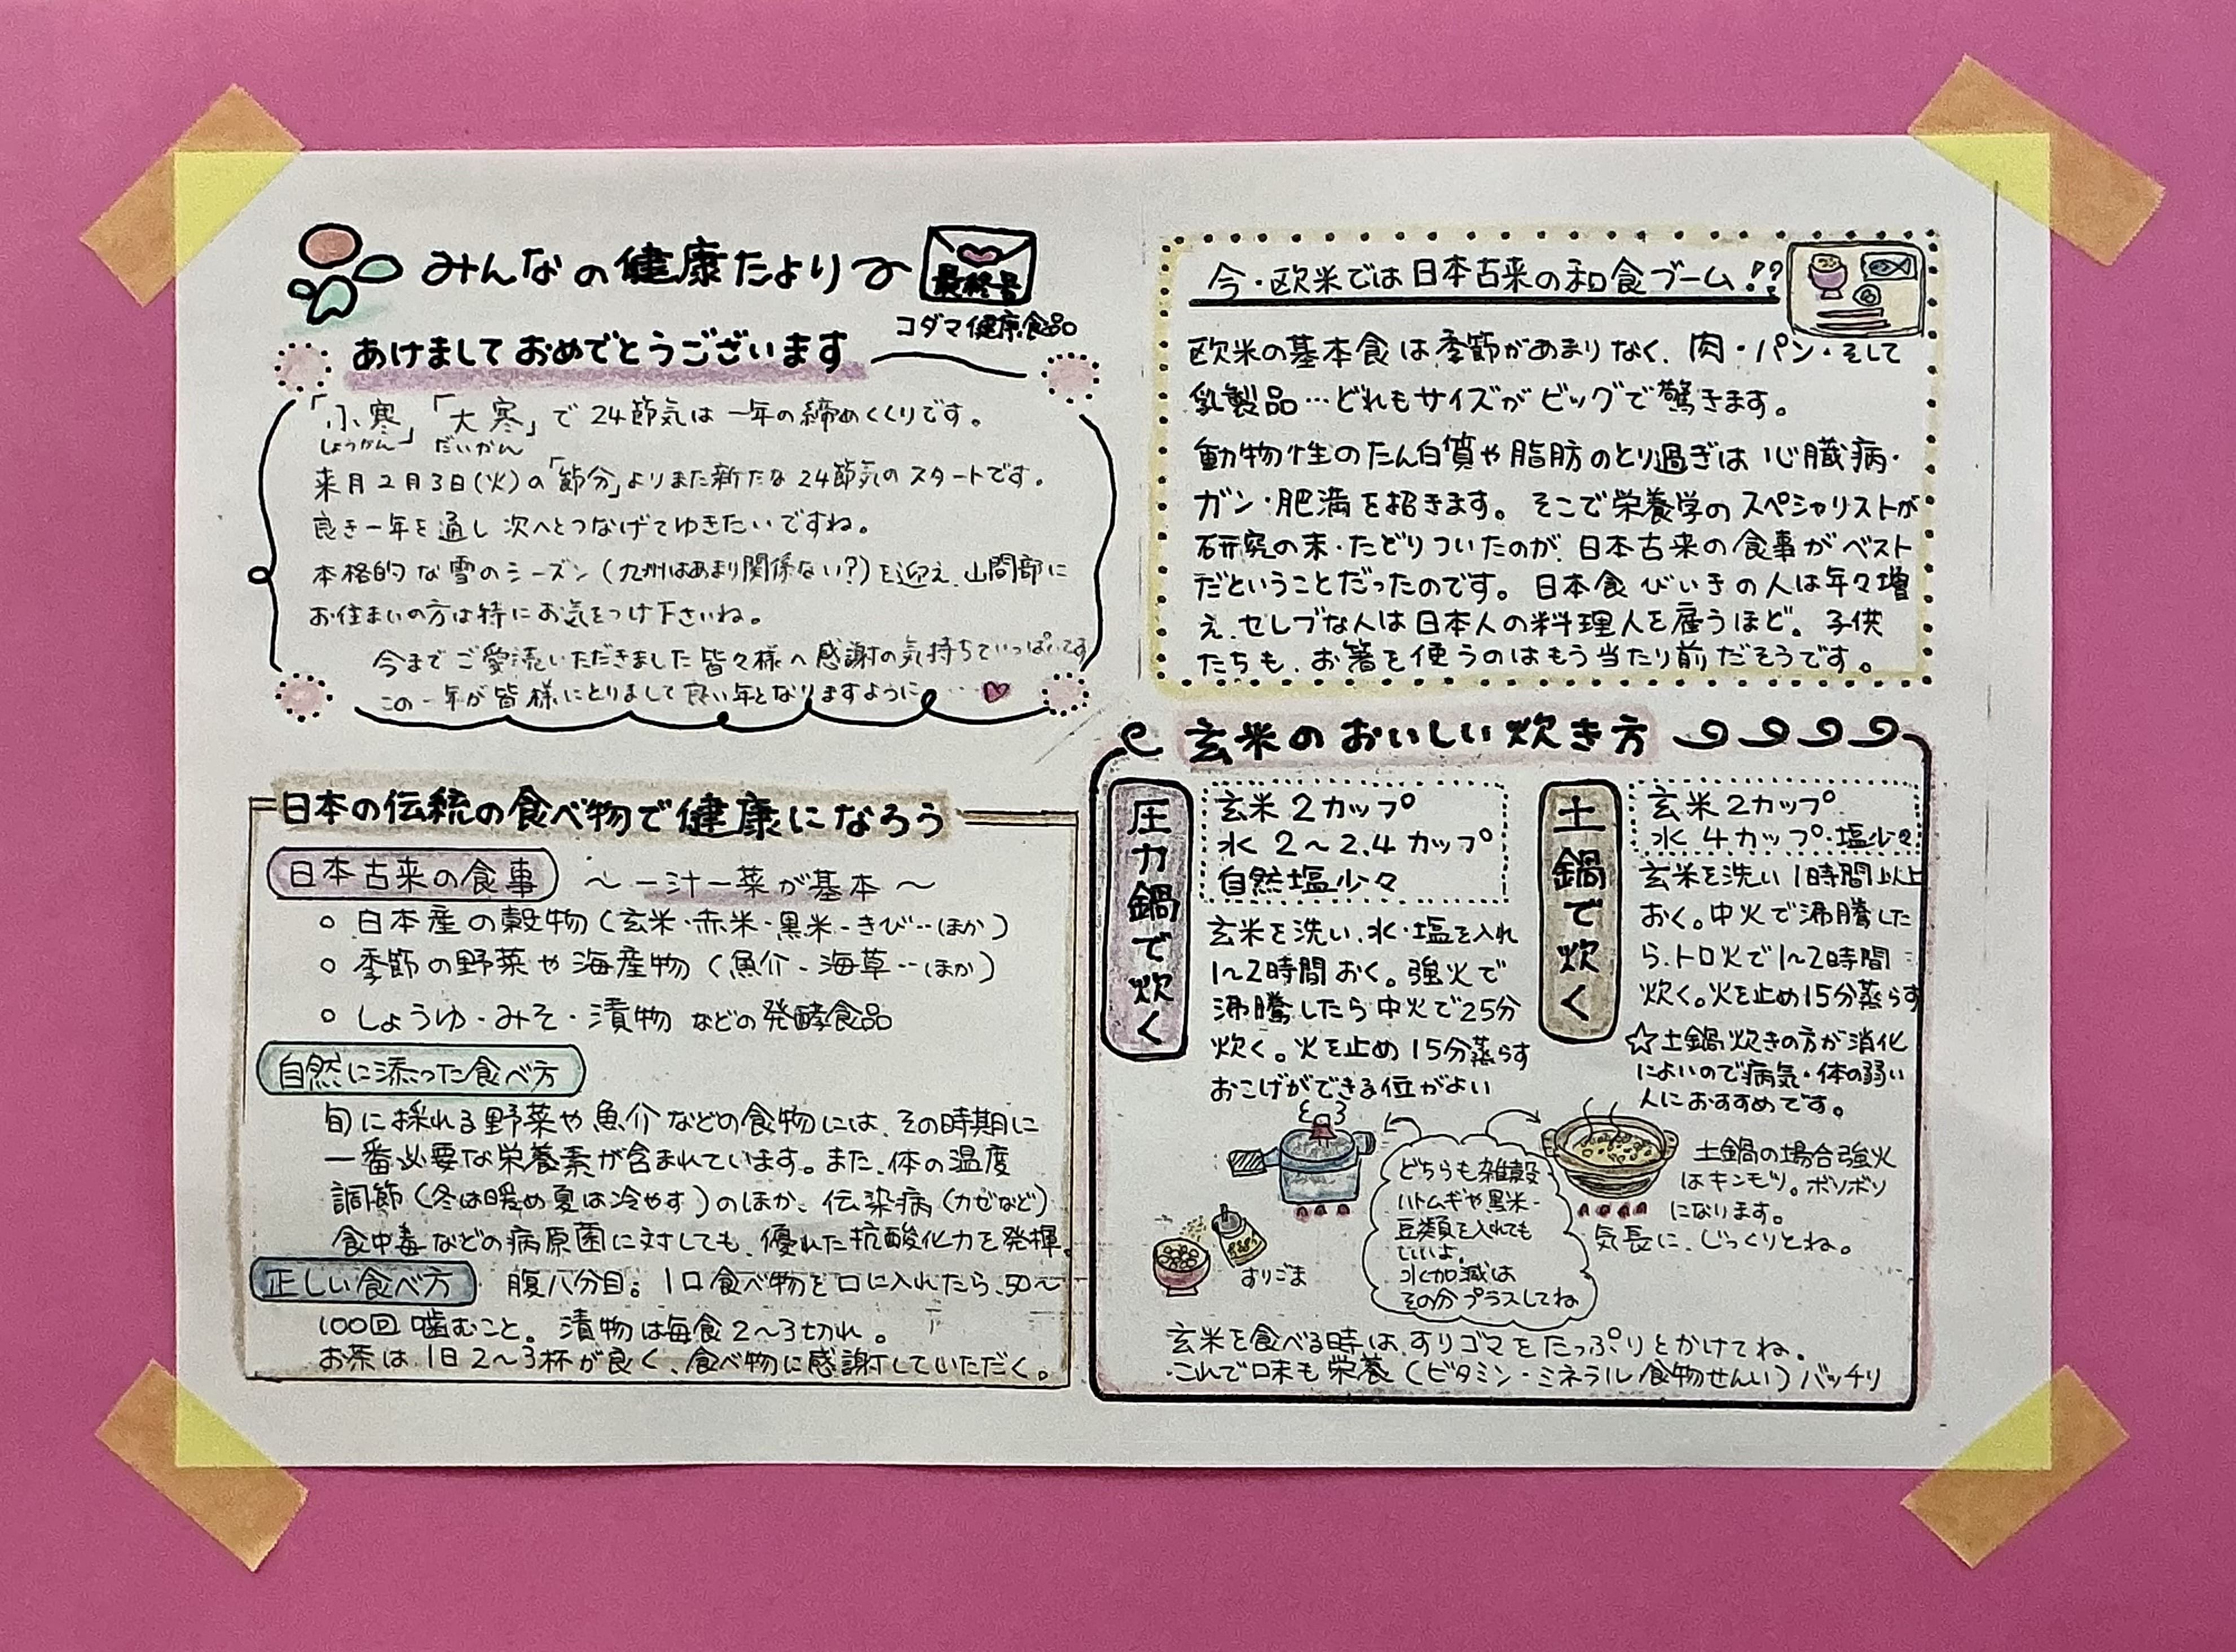 みんなの健康たより
最終号
コダマ健康食品
あけましておめでとうございます
「小寒」「大寒」で24節気は一年の締めくくりです。
しょうかん だいかん
来月2月3日(火)の「節分」よりまた新たな24節気のスタートです。
良き一年を通し次へとつなげてゆきたいですね。
本格的な雪のシーズン(九州はあまり関係ない?)を迎え、山間部に
お住まいの方は特にお気をつけ下さいね。
今までご愛読いただきました皆々様へ感謝の気持ちでいっぱいです
この一年が皆様にとりまして良い年となりますように…
日本の伝統の食べ物で健康になろう
日本古来の食事 〜一汁一菜が基本〜
○ 日本産の穀物(玄米・赤米・黒米・きび…ほか)
○ 季節の野菜や海産物(魚介・海草…ほか)
○ しょうゆ・みそ・漬物などの発酵食品
自然に添った食べ方
旬に採れる野菜や魚介などの食物には、その時期に
一番必要な栄養素が含まれています。また、体の温度
調節(冬は暖め夏は冷やす)のほか、伝染病(カゼなど)
食中毒などの病原菌に対しても、優れた抗酸化力を発揮。
正しい食べ方 腹八分目。1口食べ物を口に入れたら、50〜
100回噛むこと。漬物は毎食2〜3切れ。
お茶は、1日2〜3杯が良く、食べ物に感謝していただく。
今・欧米では日本古来の和食ブーム!?
欧米の基本食は季節があまりなく、肉・パン・そして
乳製品…どれもサイズがビッグで驚きます。
動物性のたん白質や脂肪のとり過ぎは心臓病・
ガン・肥満を招きます。そこで栄養学のスペシャリストが
研究の末・たどりついたのが、日本古来の食事がベスト
だということだったのです。日本食びいきの人は年々増
え、セレブな人は日本人の料理人を雇うほど。子供
たちも、お箸を使うのはもう当たり前だそうです。
玄米のおいしい炊き方
圧力鍋で炊く
玄米2カップ
水2〜2.4カップ
自然塩少々
玄米を洗い、水・塩を入れ
1〜2時間おく。強火で
沸騰したら中火で25分
炊く。火を止め15分蒸らす
おこげができる位がよい
土鍋で炊く
玄米2カップ
水4カップ・塩少々
玄米を洗い1時間以上
おく。中火で沸騰した
ら、トロ火で1〜2時間
炊く。火を止め15分蒸らす
☆土鍋炊きの方が消化
によいので病気・体の弱い
人におすすめです。
土鍋の場合強火
はキンモツ。ボソボソ
になります。
気長に、じっくりとね。
どちらも雑穀・
ハトムギや黒米・
豆類を入れても
いいよ。
水加減は
その分プラスしてね
すりごま
玄米を食べる時は、すりゴマをたっぷりとかけてね。
これで味も栄養(ビタミン・ミネラル食物せんい)バッチリ